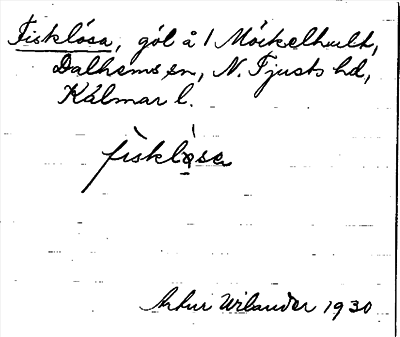 Fisklösa, göl å 1 Möckelhult,
Dalhems sn, N. Tjusts hd,
Kalmar l.
fisklòsa
Artur Wilander 1930